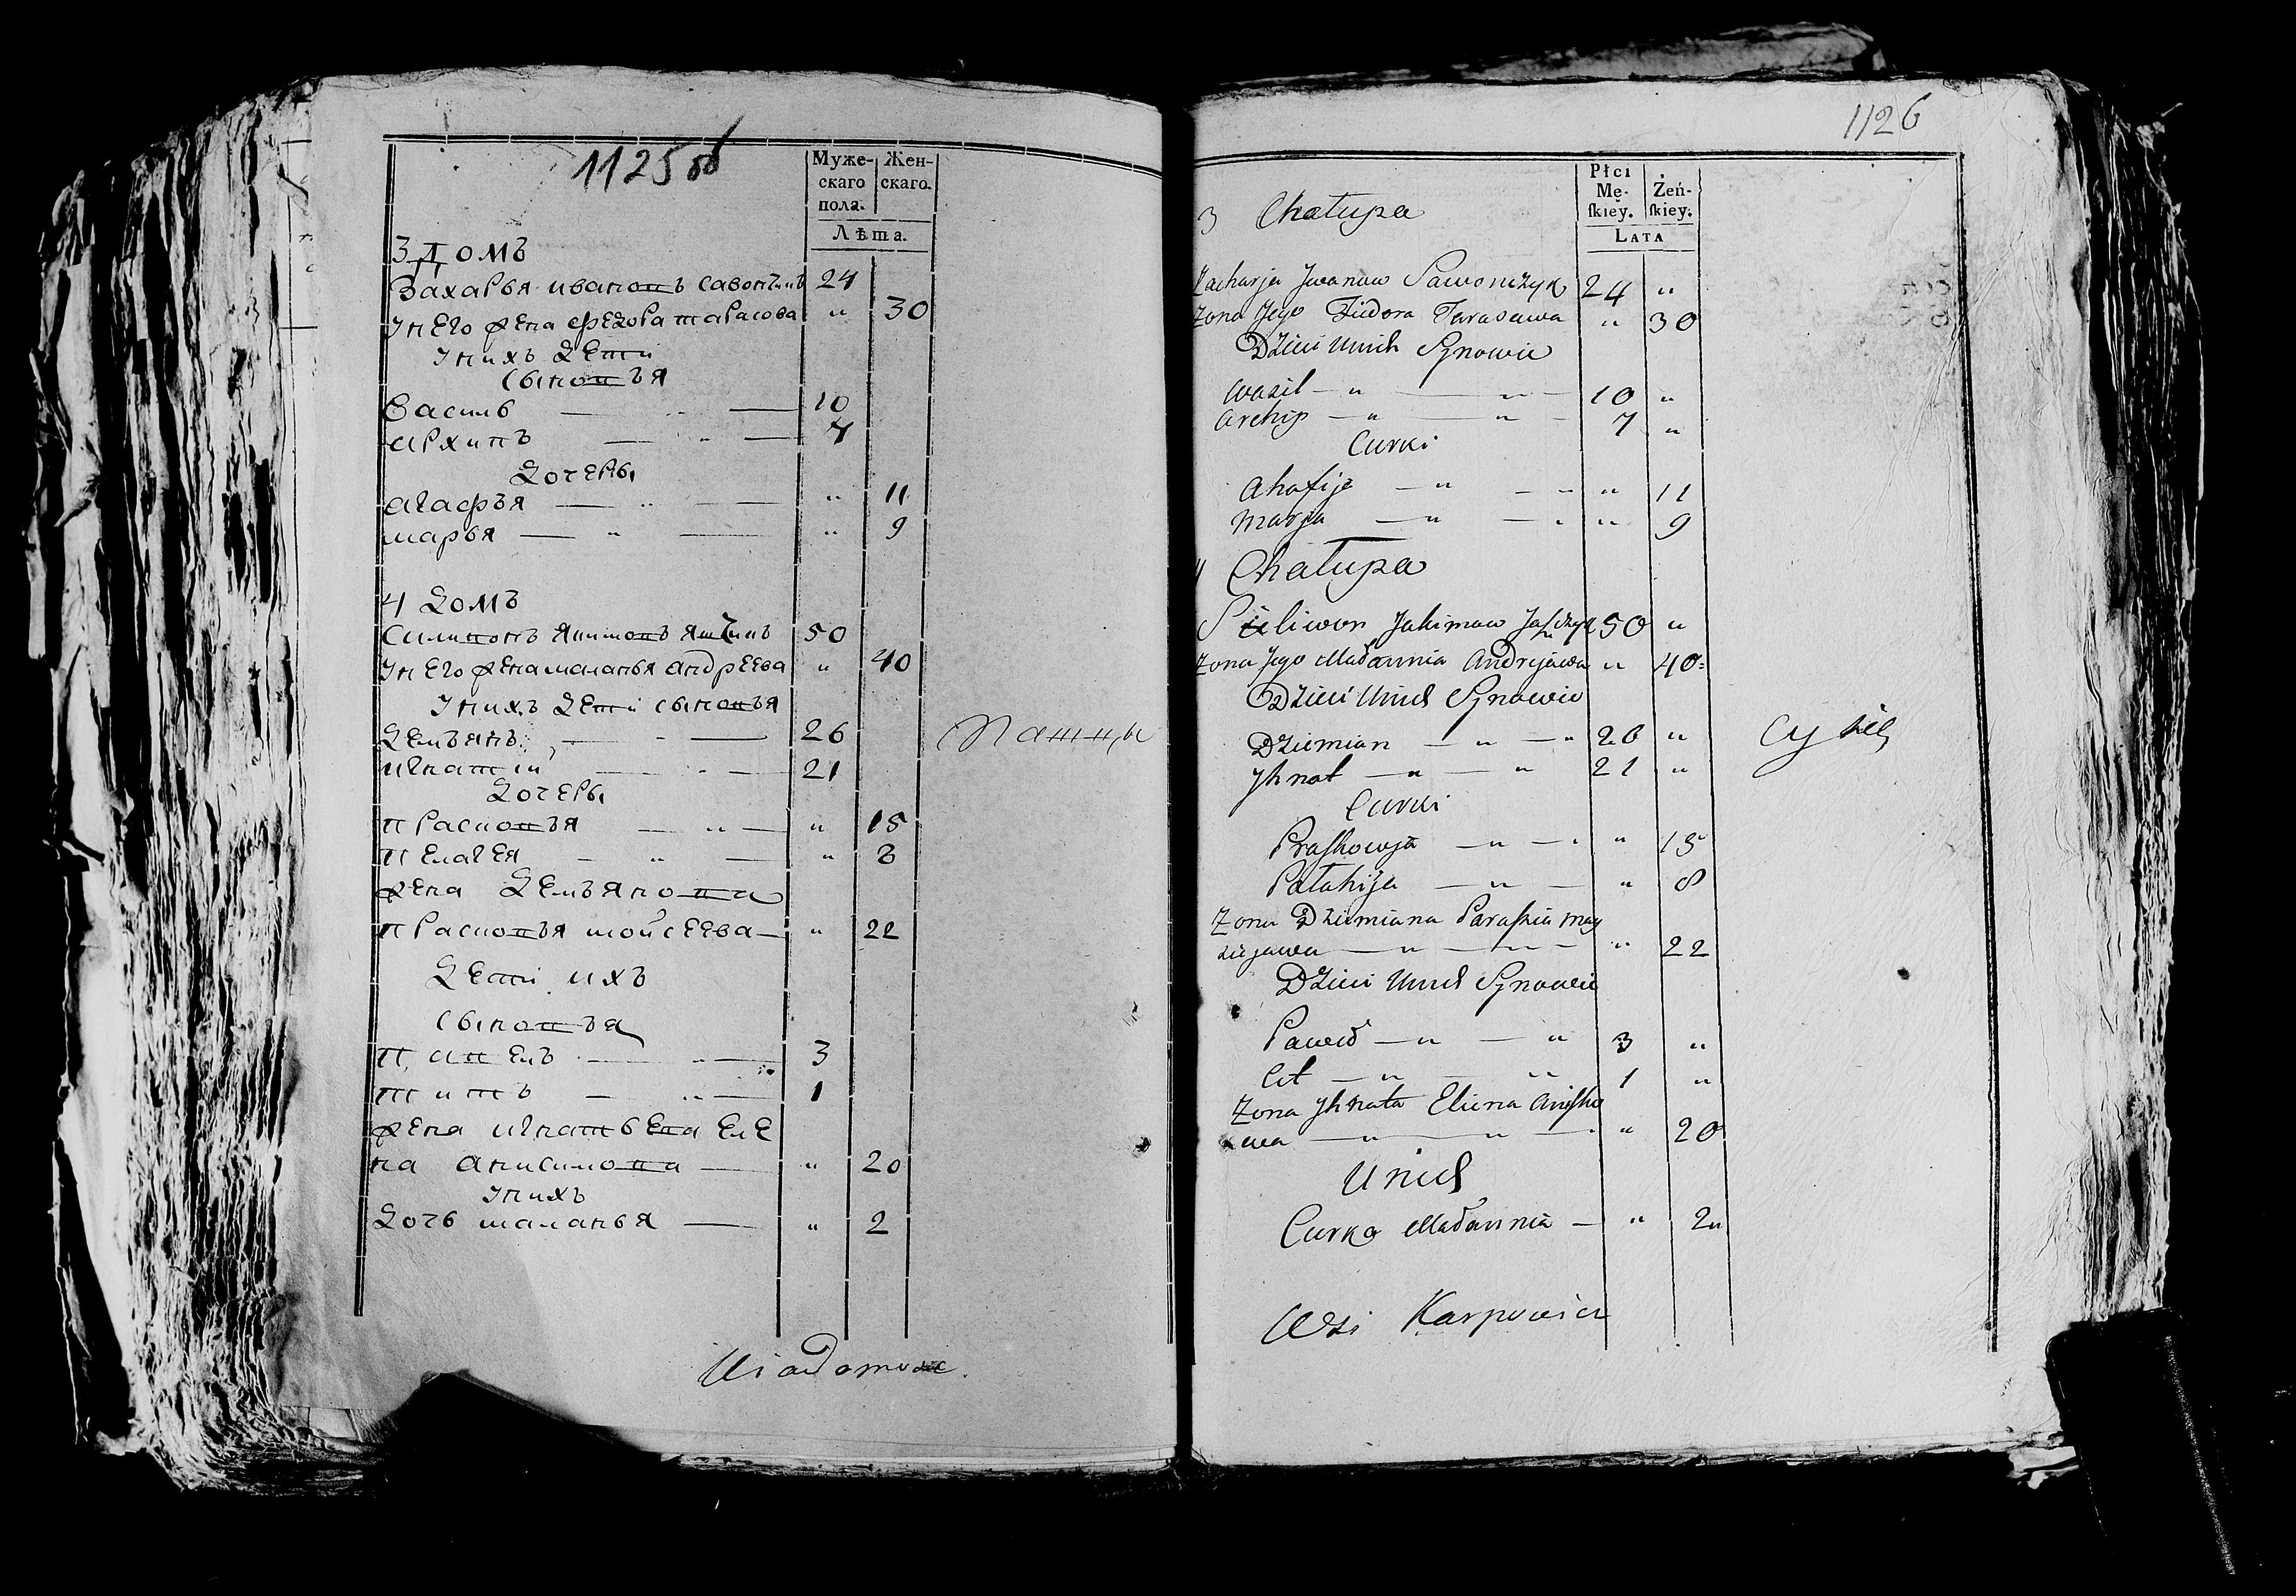 1125 об
Муже-
скаго
пола.
Жен-
скаго.
Лѣта.
3 домъ
Захарья ивановъ савончикъ 24
у него жена федора тарасова " 30
у нихъ дети
сыновъя
василь — " — 10
архипъ — " — 7
дочеры
агафъя — " — " 11
марья — " — " 9
4 домъ
Силивонъ якимовъ яшчикъ 50
у него жена маланья андреева " 40
у нихъ дети сыновъя
демъянъ — " — 26
игнатій — " — 21
дочеры
прасковъя — " — " 15
пелагея — " — " 8
жена демъянова
прасковъя мойсеева — " 22
дети ихъ
сыновъя
павелъ — " — 3
титъ — " — 1
жена игнатьева еле
на анисимова — " 20
у нихъ
дочь маланья — " 2
Wiadomość.
1126
Płci
Mę-
ſkiey.
Żeń-
ſkiey.
LATA
3 Chałupa
Zacharja Jwanow Sawonczyk 24 "
Zona Jego Fiedora Tarasowa " 30
Dzieci Unich Synowie
Wasil — " — " — 10 "
Archip — " — " — 7 "
Curki
Ahafija — " — " " 11
Marja — " — " " 9
4 Chałupa
Sieliwon Jakimow Jaszczyk 50 "
Zona Jego Małannia Andrejewa " 40
Dzieci Unich Synowie
Dziemian — " — " 26 "
Jhnat — " — " 21 "
Curki
Praſkowja — " — " " 15
Pałahija — " — " 8
Zona Dziemiana Paraſkia May
ziejewa — " — " — " 22
Dzieci Unich Synowie
Paweł — " — " 3 "
Cit — " — " 1 "
Zona Jhnata Eliena Aniſko
wa — " — " — " 20
Unich
Curka Małannia — " 2 "
Wsi Karpowicz